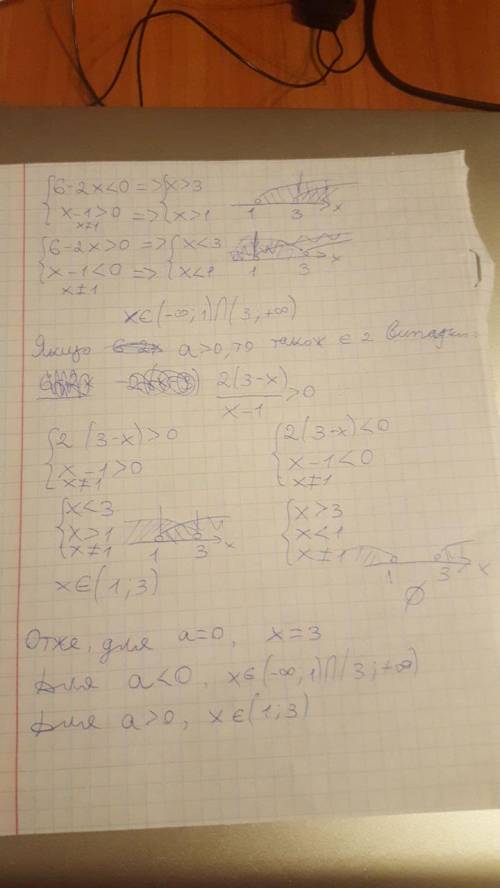 {6-2x<0 => {x>3
{x-1>0 => {x>1
x≠1
1 3 x
{6-2x>0 => {x<3
{x-1<0 => {x<1
x≠1
1 3 x
x∈(-∞;1)∩(3;+∞)
Якщо a>0, то також є 2 випадки:
2(3-x)/x-1 >0
{2(3-x)>0
{x-1>0
x≠1
{x<3
{x>1
{x≠1
1 3 x
x∈(1;3)
{2(3-x)<0
{x-1<0
x≠1
{x>3
{x<1
{x≠1
1 3 x
∅
Отже, для a=0, x=3
Для a<0, x∈(-∞;1)∩(3;+∞)
Для a>0, x∈(1;3)